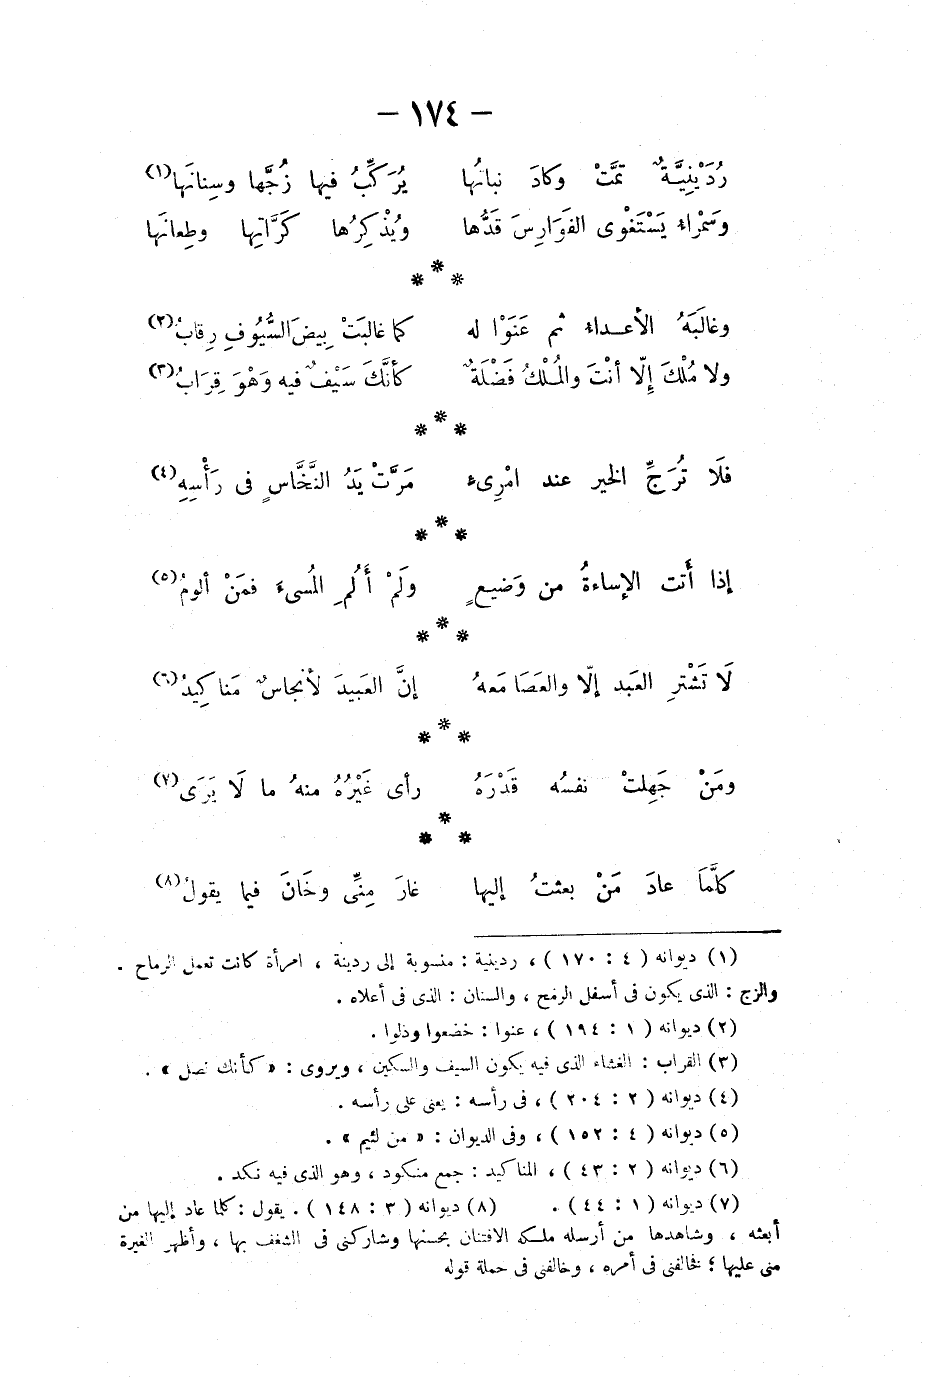 — ١٧٤ —
رُدَيْنِيَّةٌ تمَّتْ وكادَ نباتُها يُرَكِّبُ فيها زُجَّها وسِنانَها(١)
وسَمْراءُ يَسْتَغْوِى الفَوَارِسَ قَدُّها ويُذْكِرُها كَرَّاتِها وطِعانَها
* * *
وغالَبَهُ الأعــداء ثم عَنَوْا له كما غالبَتْ بِيضَ السُّيُوفِ رِقابُ(٢)
ولا مُلْكَ إِلّا أنْتَ والمُلْكُ فَضْلَةٌ كأنَّكَ سَيْفٌ فيه وَهْوَ قِرَابُ(٣)
* * *
فلَا تُرَجِّ الخير عند امْرِىء مَرَّتْ يَدُ النَّخَّاسِ فى رَأْسِهِ(٤)
* * *
إذا أَتت الإساءةُ من وَضيعٍ ولَمْ أَلُمِ المُسىءَ فمَنْ ألومُ(٥)
* * *
لَا تَشْترِ العَبد إلّا والعَصَا مَعهُ إنَّ العَبيدَ لأنجاسٌ مَناكِيدُ(٦)
* * *
ومَنْ جَهِلتْ نفسُه قَدْرَهُ رأى غَيْرُهُ منهُ ما لَا يَرَى(٧)
* * *
كلَّمَا عادَ مَنْ بعثتُ إليها غارَ مِنِّى وخَانَ فيما يقولُ(٨)
(١) ديوانه ( ٤ : ١٧٠ ) ، ردينية : منسوبة إلى ردينة ، امرأة كانت تعمل الرماح .
والزج : الذى يكون فى أسفل الرمح ، والسنان : الذى فى أعلاه .
(٢) ديوانه ( ١ : ١٩٤ ) ، عنوا : خضعوا وذلوا .
(٣) القراب : الغشاء الذى فيه يكون السيف والسكين ، ويروى : « كأنك نصل » .
(٤) ديوانه ( ٢ : ٢٠٤ ) ، فى رأسه : يعنى على رأسه .
(٥) ديوانه ( ٤ : ١٥٢ ) ، وفى الديوان : « من لئيم » .
(٦) ديوانه ( ٢ : ٤٣ ) ، المناكيد : جمع منكود ، وهو الذى فيه نكد .
(٧) ديوانه ( ١ : ٤٤ ) . (٨) ديوانه ( ٣ : ١٤٨ ) . يقول : كلما عاد إليها من
أبعثه ، وشاهدها من أرسله ملكه الافتنان بحسنها وشاركنى فى الشغف بها ، وأظهر الغيرة
منى عليها ؛ فخالفنى فى أمره ، وخالفنى فى حملة قوله